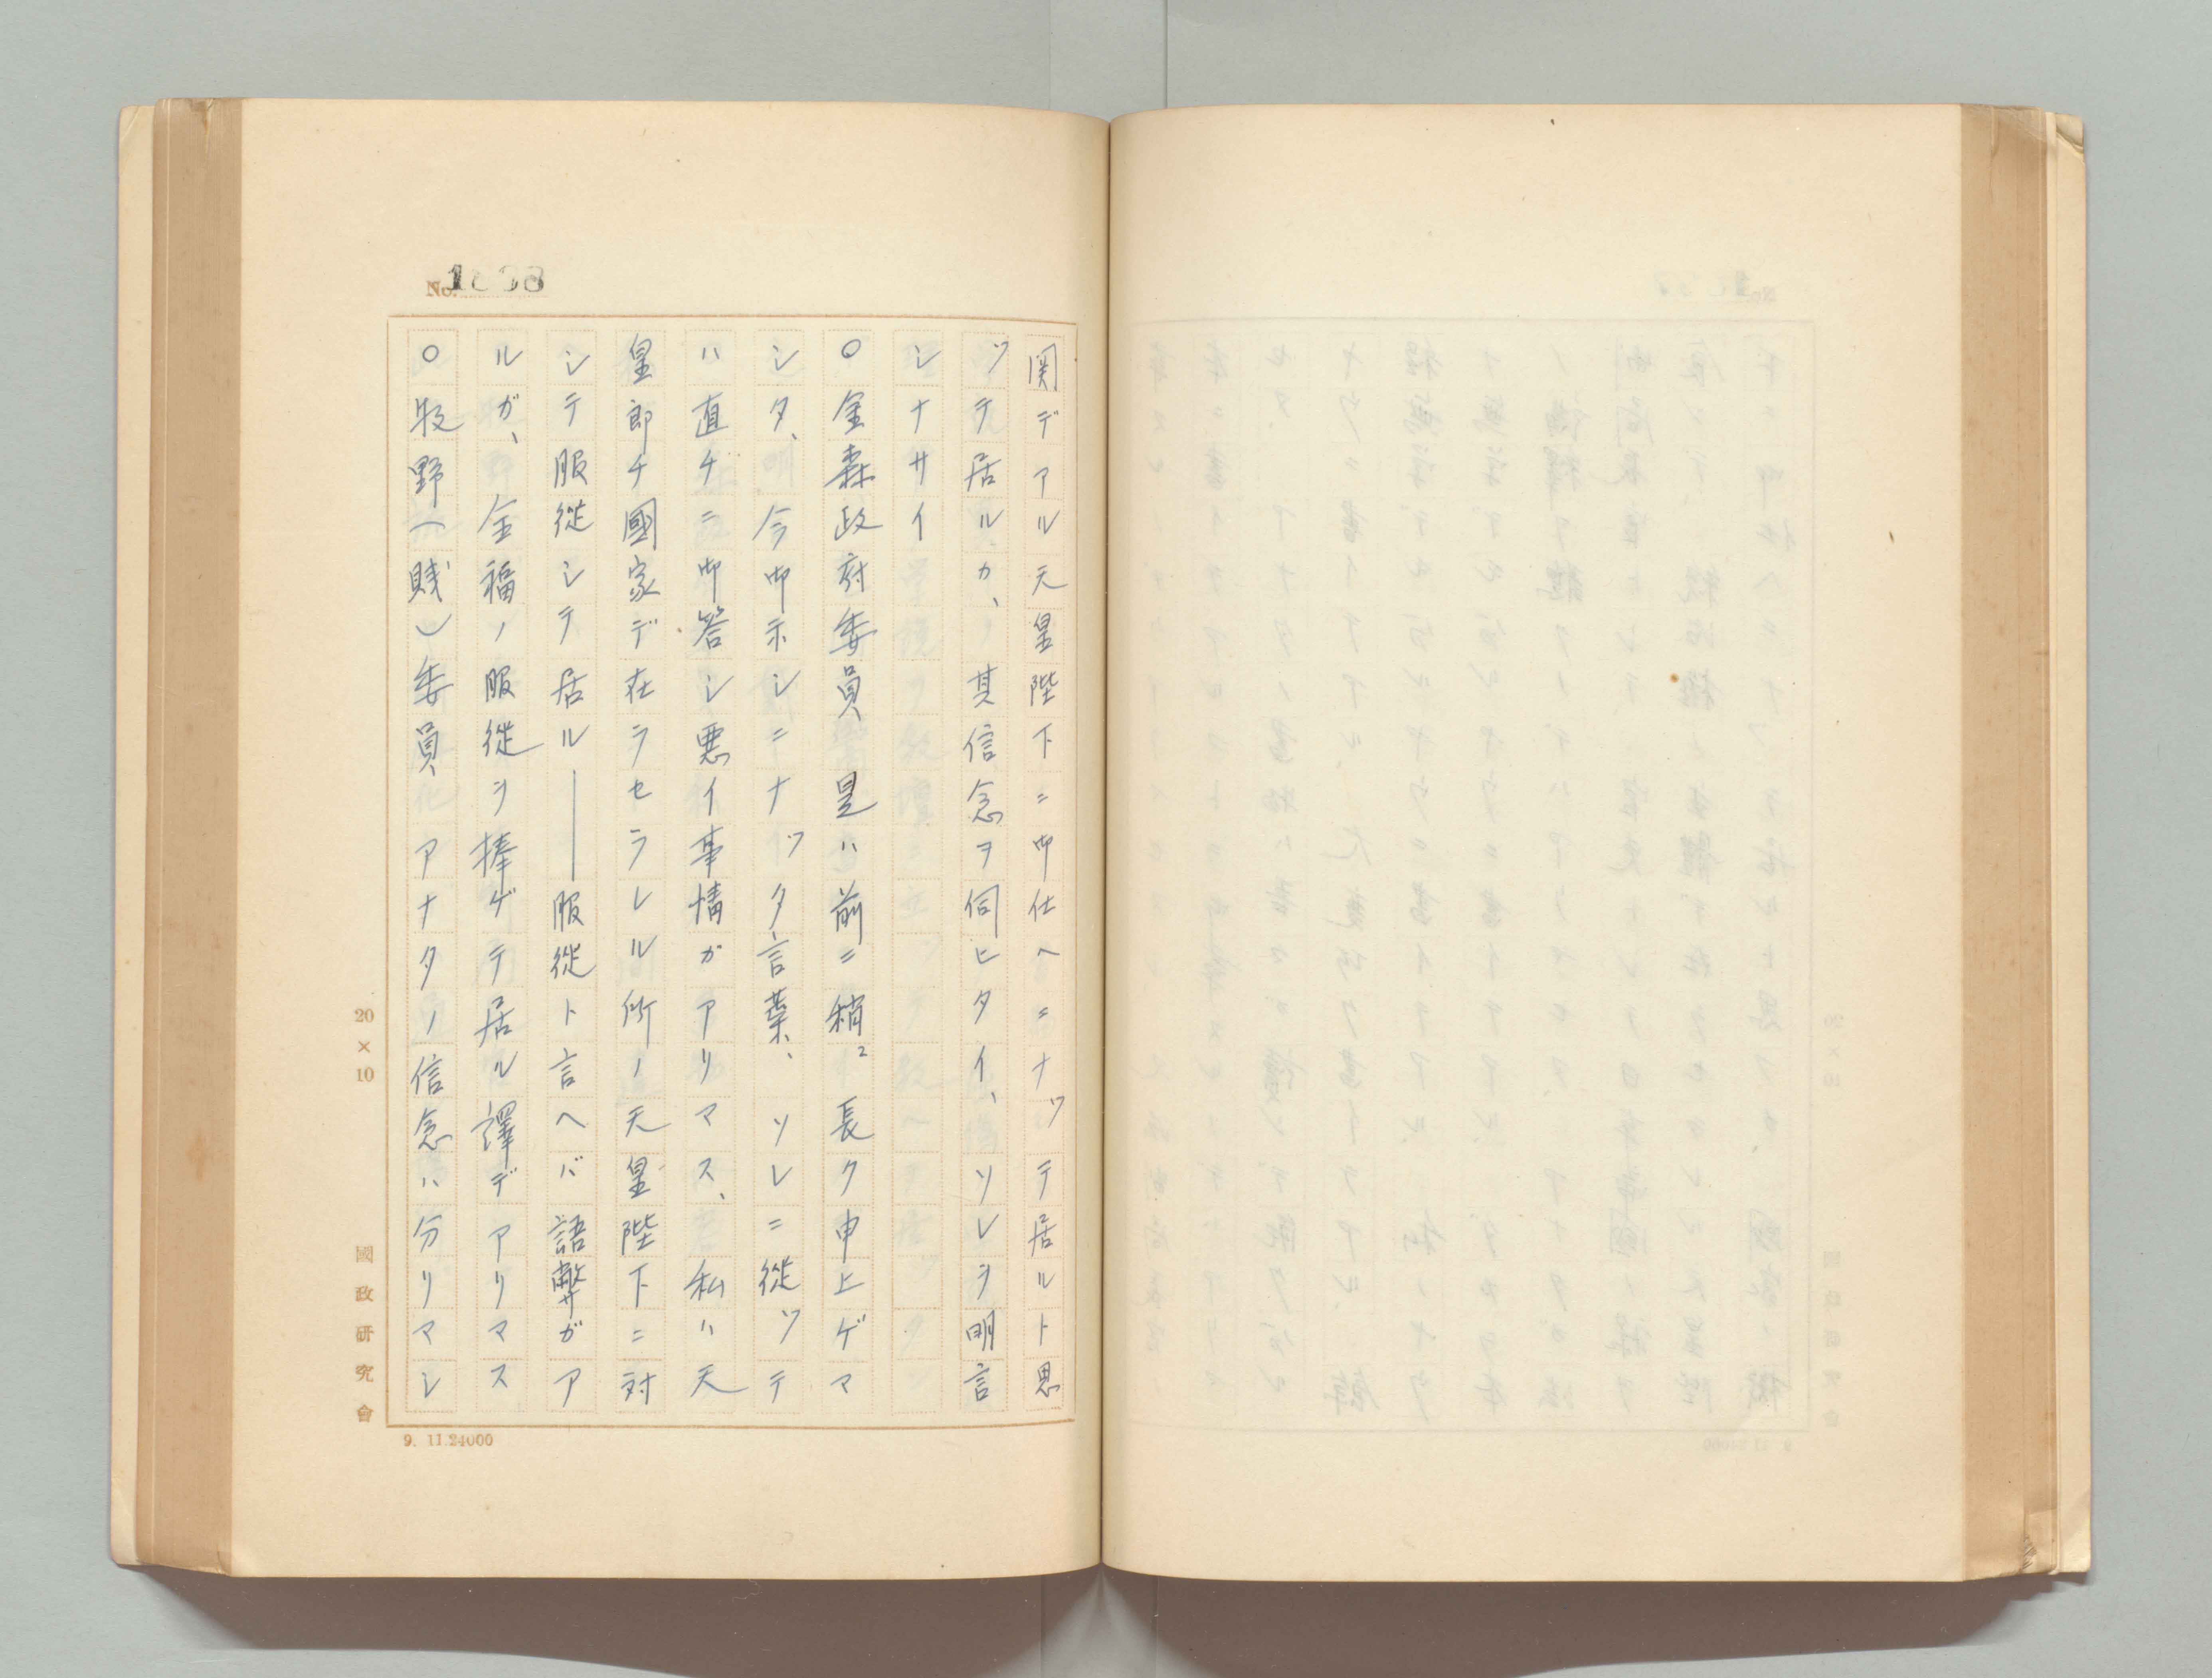 No. 1838
関デアル天皇陛下ニ御仕ヘニナッテ居ルト思
ッテ居ルカ、其信念ヲ伺ヒタイ、ソレヲ明言
シナサイ
○金森政府委員 是ハ前ニ稍〻長ク申上ゲマ
シタ、今御示シニナッタ言葉、ソレニ從ッテ
ハ直チニ御答シ悪イ事情ガアリマス、私ハ天
皇即チ國家デ在ラセラレル所ノ天皇陛下ニ対
シテ服從シテ居ル――服從ト言ヘバ語弊ガア
ルガ、全福ノ服從ヲ捧ゲテ居ル譯デアリマス
○牧野(賤)委員 アナタノ信念ハ分リマシ
20×10
國政研究會
9. 11.24000